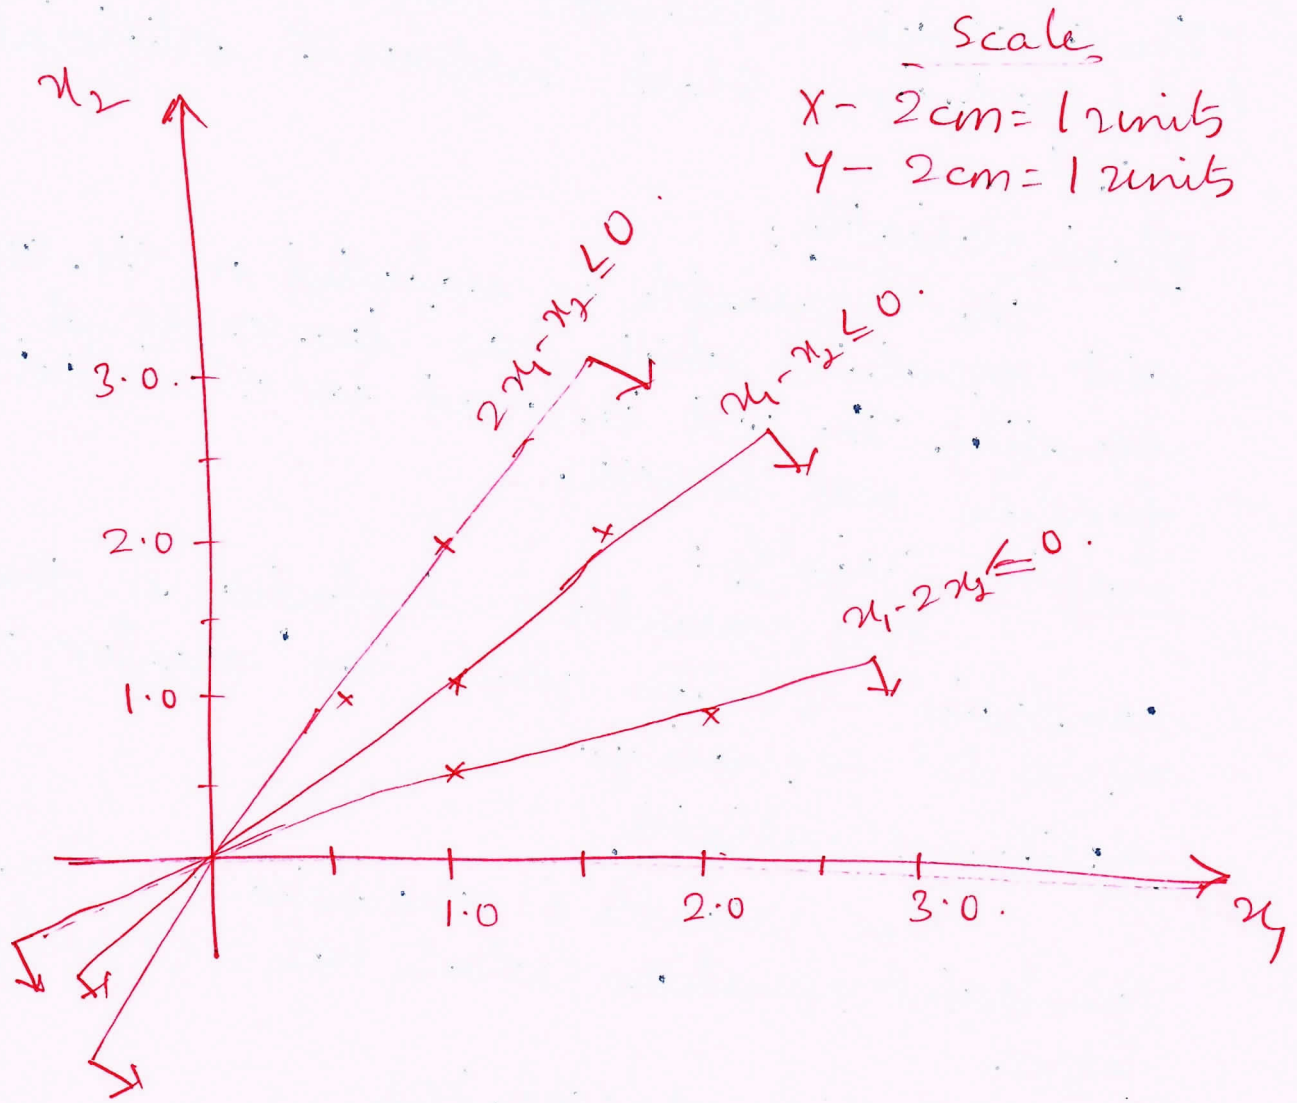 Scale
X - 2cm = 1 units
Y - 2cm = 1 units
x₂
2x₁ - x₂ ≤ 0.
x₁ - x₂ ≤ 0.
x₁ - 2x₂ <= 0.
3.0.
2.0
1.0
1.0 2.0 3.0.
x₁